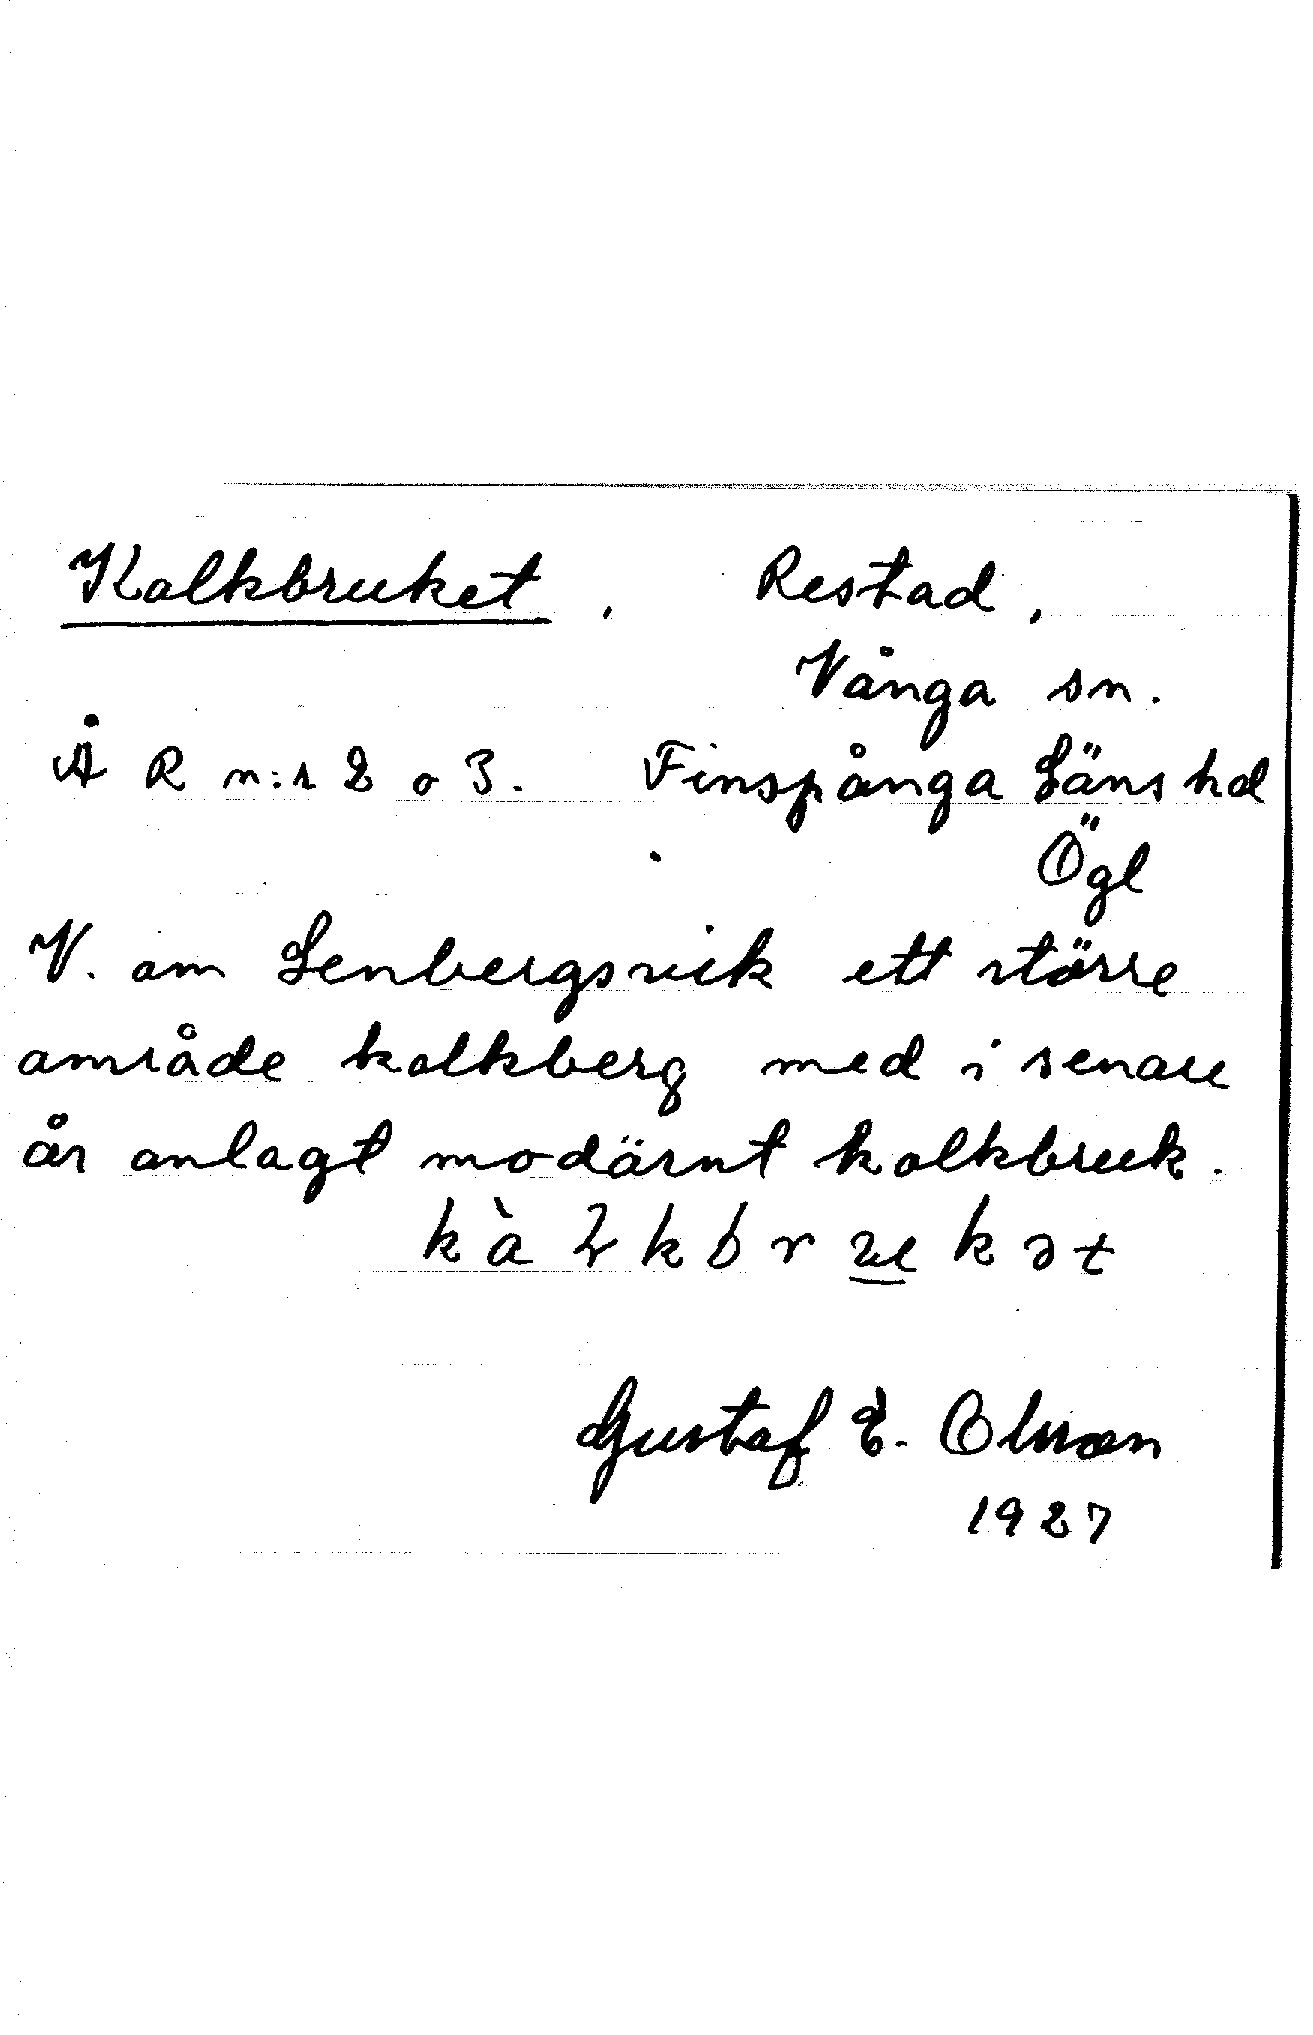 Kalkbruket, Restad,
Vånga sn.
Å R n:r 2 o 3. Finspånga Läns hd
Ögl
V. om Lenbergsvik ett större
område kalkberg med i senare
år anlagt modärnt kalkbruk.
Gustaf E. Olsson
1927